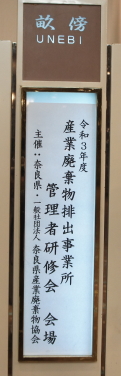 畝傍
UNEBI
令和3年度
産業廃棄物排出事業所
管理者研修会 会場
主催：奈良県・一般社団法人 奈良県産業廃棄物協会